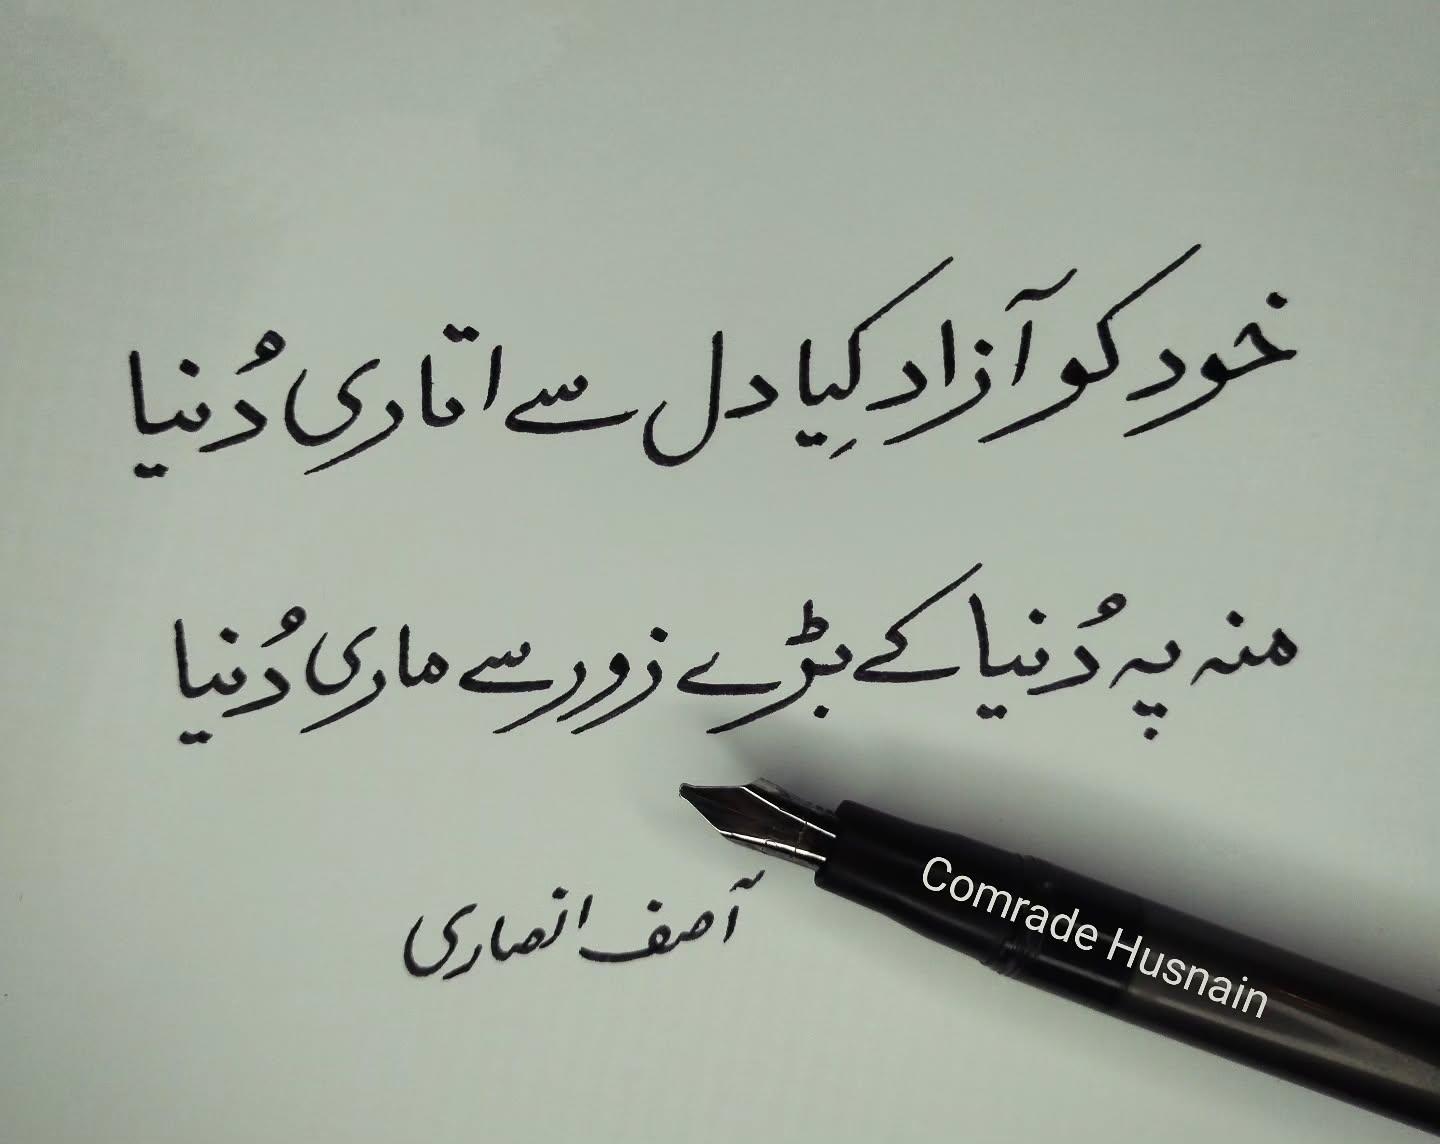 خود کو آزاد کِیا دل سے اتاری دُنیا
منہ پہ دُنیا کے بڑے زور سے ماری دُنیا
آصف انصاری
Comrade Husnain